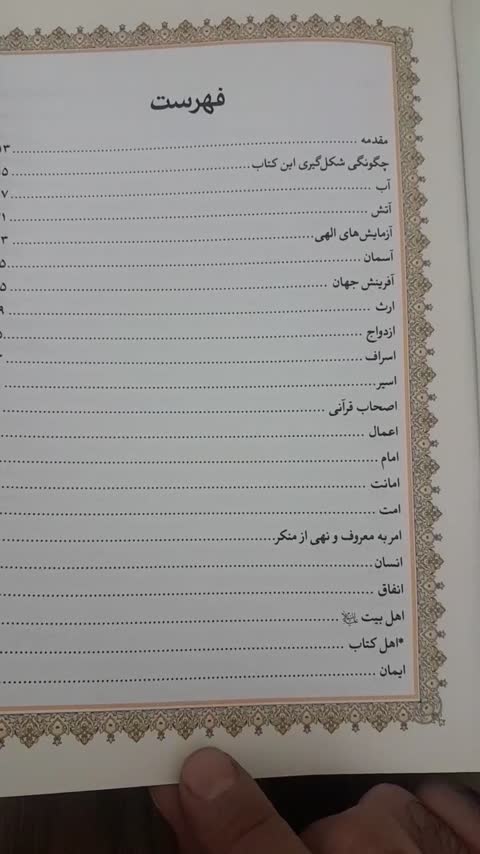 فهرست
مقدمه ............ ۱۳
چگونگی شکل‌گیری این کتاب ............
آب ............
آتش ............
آزمایش‌های الهی ............
آسمان ............
آفرینش جهان ............
ارث ............
ازدواج ............
اسراف ............
اسیر ............
اصحاب قرآنی ............
اعمال ............
امام ............
امانت ............
امت ............
امر به معروف و نهی از منکر ............
انسان ............
انفاق ............
اهل بیت ............
*اهل کتاب ............
ایمان ............